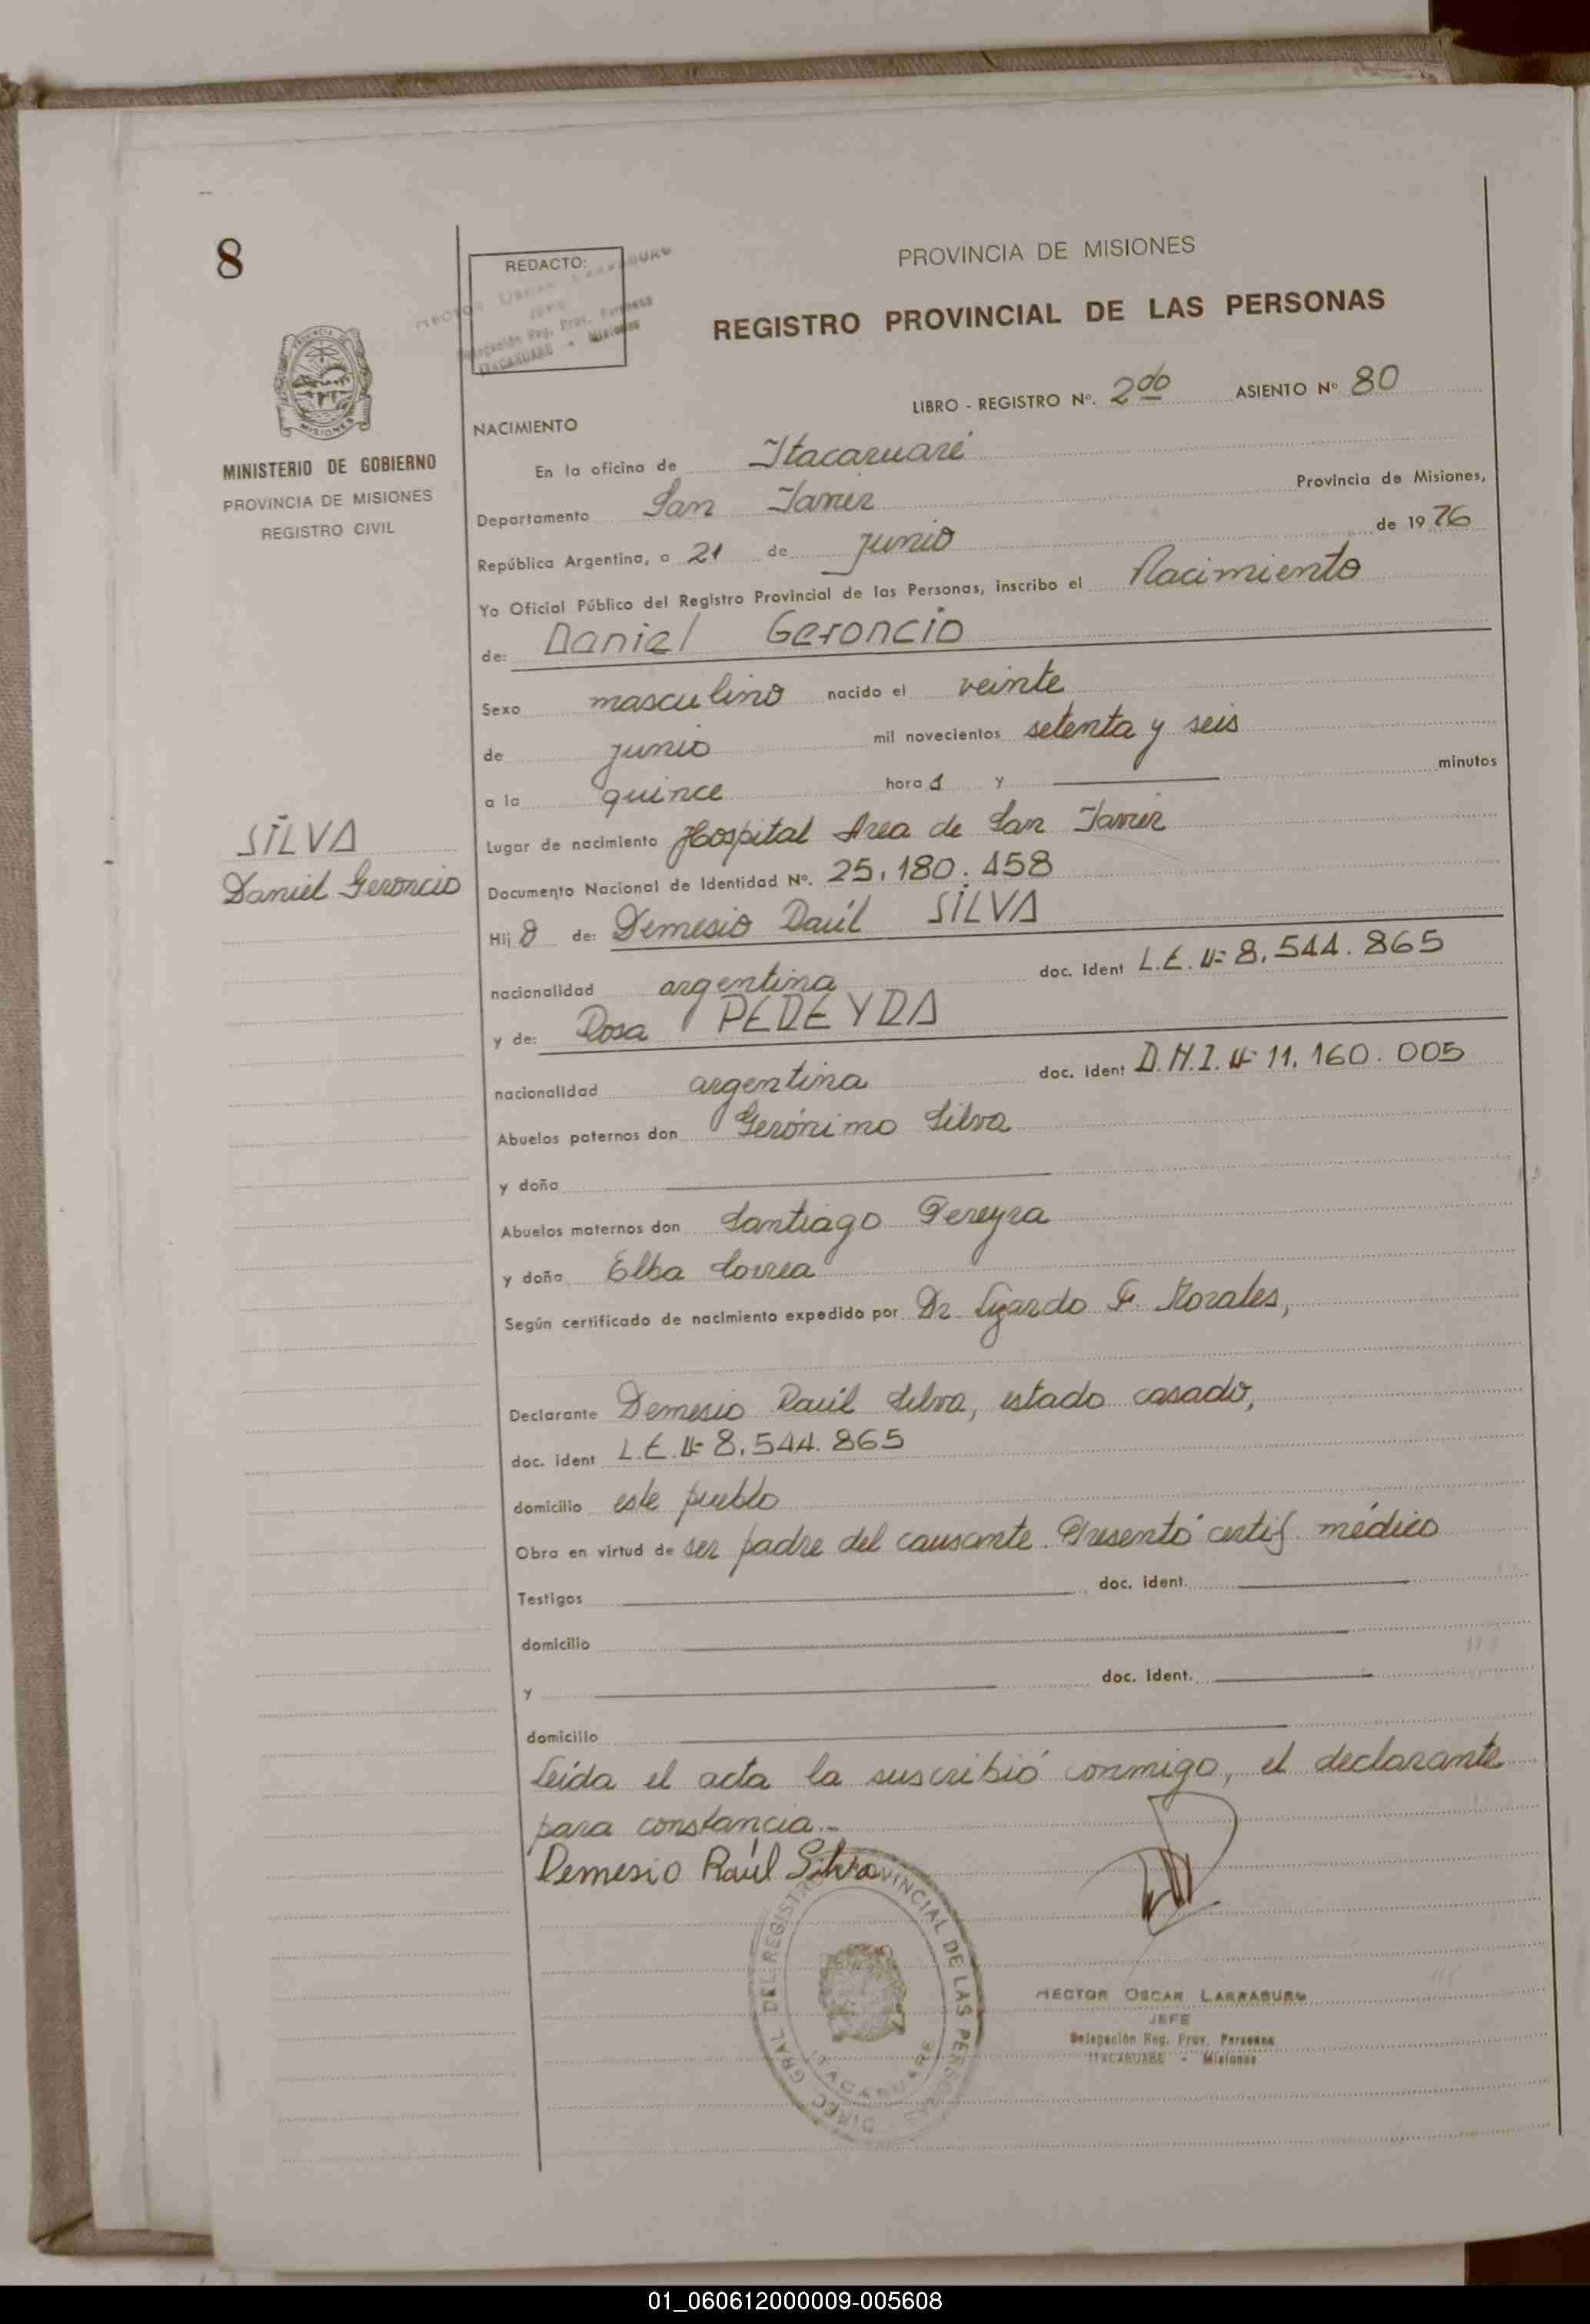 8
REDACTO:
PROVINCIA DE MISIONES
REGISTRO PROVINCIAL DE LAS PERSONAS
MINISTERIO DE GOBIERNO
PROVINCIA DE MISIONES
REGISTRO CIVIL
LIBRO - REGISTRO Nº. 2do ASIENTO Nº 80
NACIMIENTO
En la oficina de Itacaruaré
Departamento San Javier Provincia de Misiones,
República Argentina, a 21 de junio de 1976
Yo Oficial Público del Registro Provincial de las Personas, inscribo el Nacimiento
de: Daniel Geroncio
Sexo masculino nacido el veinte
de junio mil novecientos setenta y seis
a la quince hora s y minutos
Lugar de nacimiento Hospital Area de San Javier
SILVA
Daniel Geroncio
Documento Nacional de Identidad Nº. 25.180.458
Hijo de: Demesio Raúl SILVA
nacionalidad argentina doc. ident L.E. Nº 8.544.865
y de: Rosa PEREYRA
nacionalidad argentina doc. ident D.N.I. Nº 11.160.005
Abuelos paternos don Gerónimo Silva
y doña
Abuelos maternos don Santiago Pereyra
y doña Elba Correa
Según certificado de nacimiento expedido por Dr. F. Morales,
Declarante Demesio Raúl Silva, estado casado,
doc. ident L.E. Nº 8.544.865
domicilio este pueblo
Obra en virtud de ser padre del causante. Presentó certif. médico
Testigos doc. ident.
domicilio
y doc. ident.
domicilio
Leída el acta la suscribió conmigo, el declarante
para constancia.-
Demesio Raúl Silva
DIREC. GRAL. DEL REGISTRO PROVINCIAL DE LAS PERSONAS
ITACARUARE
HECTOR OSCAR LARRABURU
JEFE
Delegación Reg. Prov. Personas
ITACARUARE - Misiones
01_060612000009-005608